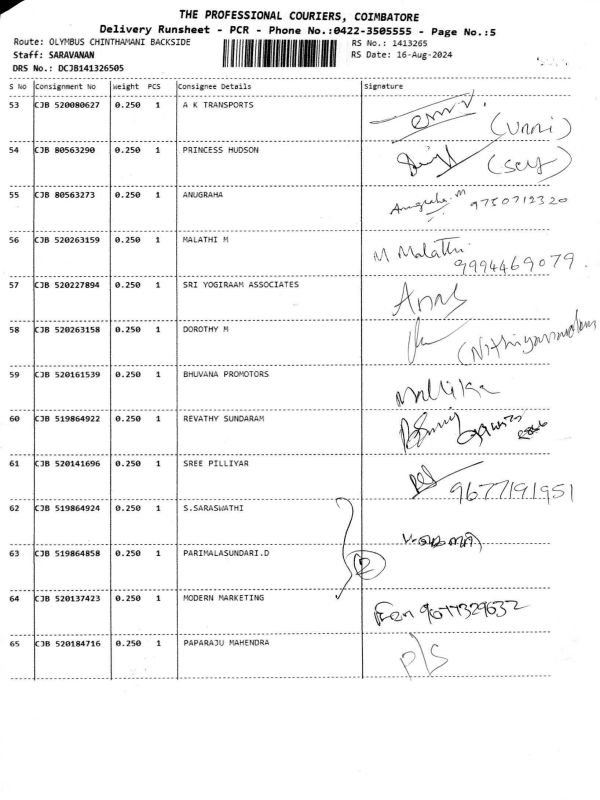 THE PROFESSIONAL COURIERS, COIMBATORE
Delivery Runsheet - PCR - Phone No.:0422-3505555 - Page No.:5
Route: OLYMBUS CHINTHAMANI BACKSIDE RS No.: 1413265
Staff: SARAVANAN RS Date: 16-Aug-2024
DRS No.: DCJB141326505
S No Consignment No Weight PCS Consignee Details Signature
53 CJB 520080627 0.250 1 A K TRANSPORTS
(Unni)
54 CJB 80563290 0.250 1 PRINCESS HUDSON
(self)
55 CJB 80563273 0.250 1 ANUGRAHA Anugraha. M 9750712320
56 CJB 520263159 0.250 1 MALATHI M M Malathi
9994469079
57 CJB 520227894 0.250 1 SRI YOGIRAAM ASSOCIATES
58 CJB 520263158 0.250 1 DOROTHY M
59 CJB 520161539 0.250 1 BHUVANA PROMOTORS Mallika
60 CJB 519864922 0.250 1 REVATHY SUNDARAM
61 CJB 520141696 0.250 1 SREE PILLIYAR 9677191951
62 CJB 519864924 0.250 1 S.SARASWATHI
63 CJB 519864858 0.250 1 PARIMALASUNDARI.D 2
64 CJB 520137423 0.250 1 MODERN MARKETING 9677329632
65 CJB 520184716 0.250 1 PAPARAJU MAHENDRA P/S